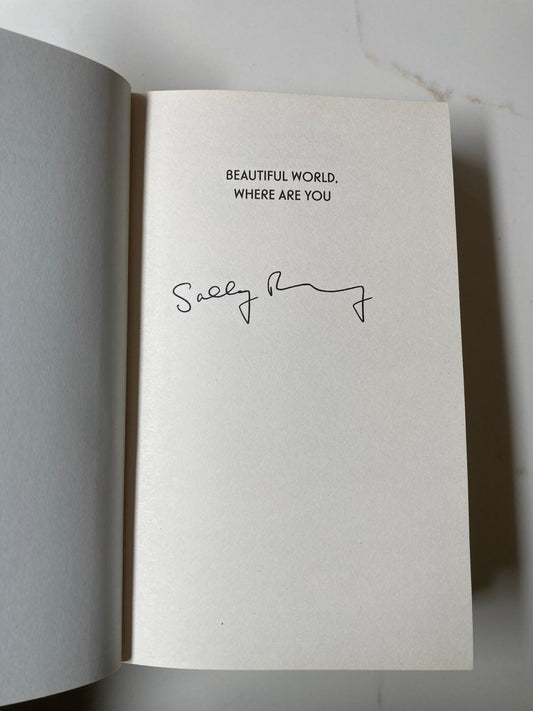 BEAUTIFUL WORLD,
WHERE ARE YOU
Sally Rooney